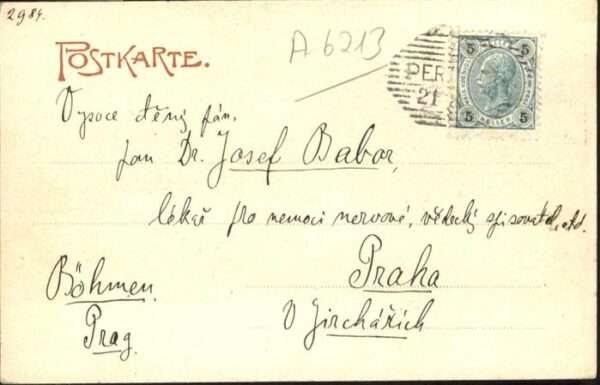 2984.
A 6213
POSTKARTE.
5 5
PER
21
HELLER
5 5
Vysoce ctěný pán,
pan Dr. Josef Babor,
lékař pro nemoci nervové, vědecký spisovatel, atd.
Praha
V Jirchářích
Böhmen.
Prag.